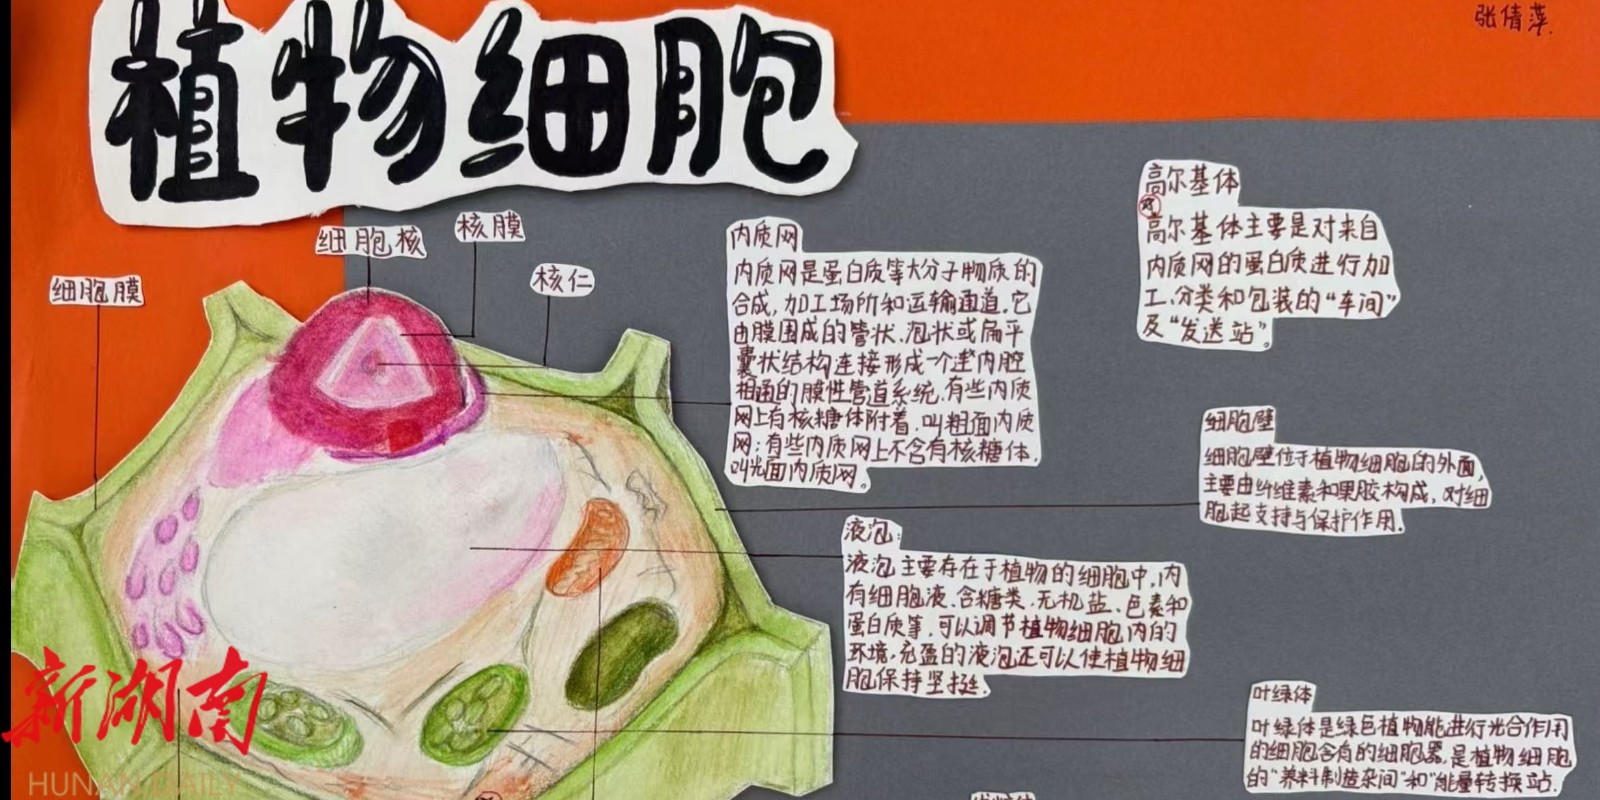 张倩萍.
植物细胞
高尔基体
高尔基体主要是对来自
内质网的蛋白质进行加
工、分类和包装的“车间”
及“发送站”。
细胞核
核膜
核仁
细胞膜
内质网
内质网是蛋白质等大分子物质的
合成,加工场所和运输通道。它
由膜围成的管状、泡状或扁平
囊状结构连接形成一个连内腔
相通的膜性管道系统,有些内质
网上有核糖体附着,叫粗面内质
网;有些内质网上不含有核糖体,
叫光面内质网。
细胞壁
细胞壁位于植物细胞的外面,
主要由纤维素和果胶构成,对细
胞起支持与保护作用.
液泡:
液泡主要存在于植物的细胞中,内
有细胞液、含糖类、无机盐、色素和
蛋白质等,可以调节植物细胞内的
环境,充盈的液泡还可以使植物细
胞保持坚挺.
叶绿体
叶绿体是绿色植物能进行光合作用
的细胞含有的细胞器,是植物细胞
的“养料制造车间”和“能量转换站.
新湖南
HUNAN DAILY